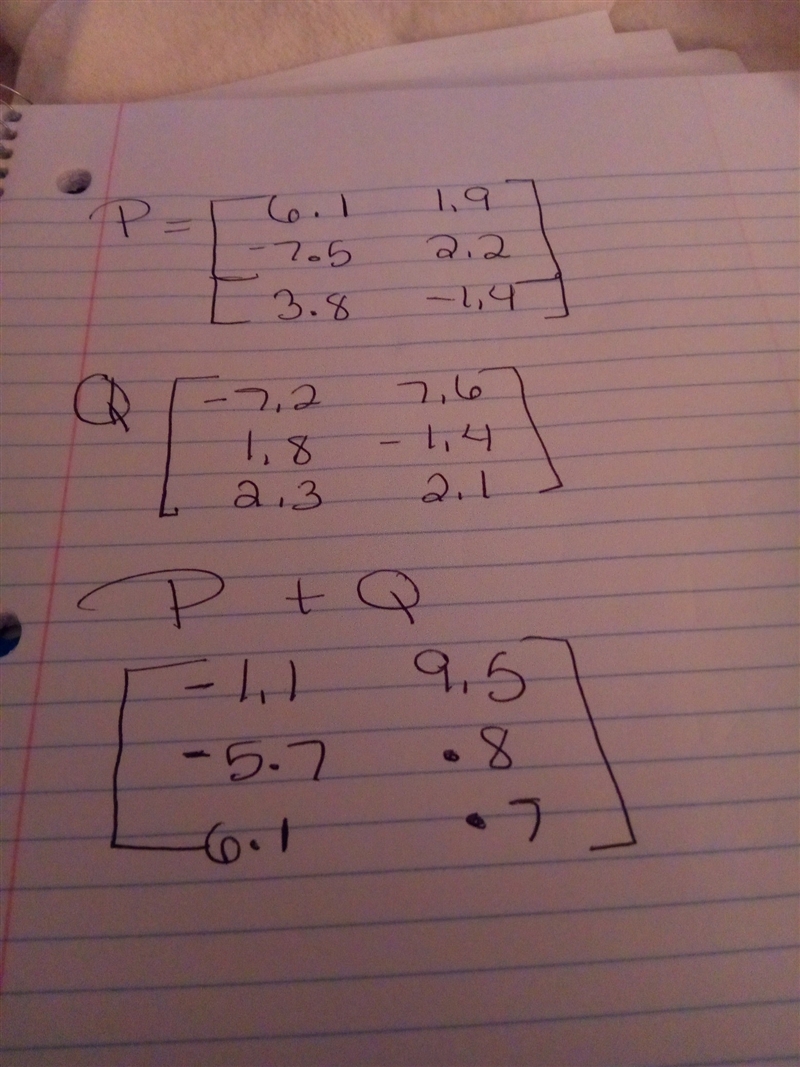 P = [ 6.1 1.9 ]
-7.5 2.2
3.8 -1.4
Q [ -7.2 7.6 ]
1.8 -1.4
2.3 2.1
P + Q
[ -1.1 9.5 ]
-5.7 .8
6.1 .7